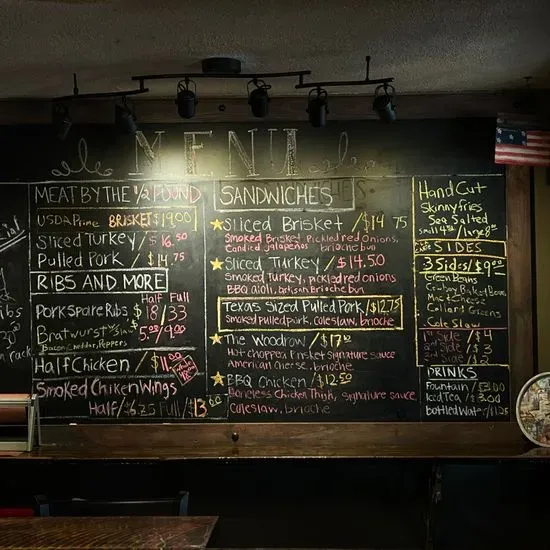 MENU
MEAT BY THE 1/2 POUND
USDA Prime BRISKET $19.00
Sliced Turkey / $16.50
Pulled Pork / $14.75
RIBS AND MORE
Half Full
Pork Spare Ribs $18/33
Bratwurst
5.00/9.00
Bacon, Cheddar, Peppers
Half Chicken / $11.00
Smoked Chiken Wings
Half/$6.75 Full/$13
SANDWICHES
Sliced Brisket / $14.75
Smoked Brisket Pickled red Onions,
Candied jalapeños, brioche bun
Sliced Turkey / $14.50
Smoked Turkey, pickled red onions
BBQ aioli, Brioche bun
Texas Sized Pulled Pork / $12.75
Smoked pulled pork, coleslaw, brioche
The Woodrow / $17
Hot chopped Brisket signature sauce
American cheese, brioche
BBQ Chicken / $12.50
Boneless Chicken Thigh, signature sauce
Coleslaw, brioche
Hand Cut
Skinny fries
Sea Salted
Small 4 / large 8
SIDES
3 Sides / $9
Green Beans
Cowboy Baked Beans
Mac + Cheese
Collard Greens
Cole Slaw
1st Side / $4
2nd Side / $3
3rd Side / $2
DRINKS
Fountain / $3.00
Iced Tea / $3.00
bottled Water /